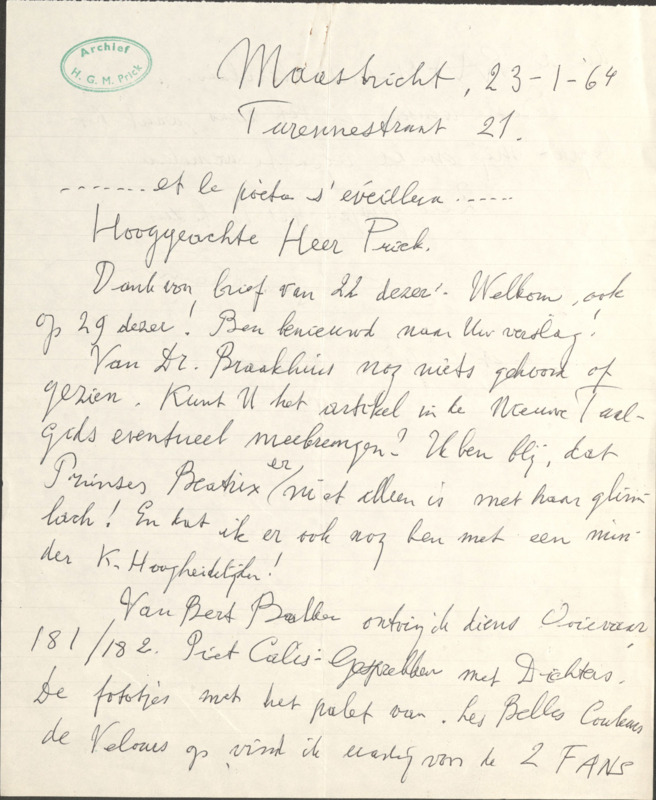 Archief
H. G. M. Prick
Maastricht, 23-1-'64
Turennestraat 21.
------- et le poète s'éveillera ------
Hooggeachte Heer Prick.
Dank voor brief van 22 dezer. Welkom, ook
op 29 dezer! Ben benieuwd naar Uw verslag!
Van Dr. Braakhuis nog niets gehoord of
gezien. Kunt U het artikel in de Nieuwe Taal-
gids eventueel meebrengen? Ik ben blij, dat
Prinses Beatrix er niet alleen is met haar glim-
lach! En dat ik er ook nog ben met een min-
der K. Hoogheidelijke!
Van Bert Bakker ontving ik diens Ooievaar
181/182. Piet Calis - Gesprekken met Dichters.
De fotootjes met het palet van. Les Belles Couleurs
de Velours op, vind ik aardig voor de 2 FANS